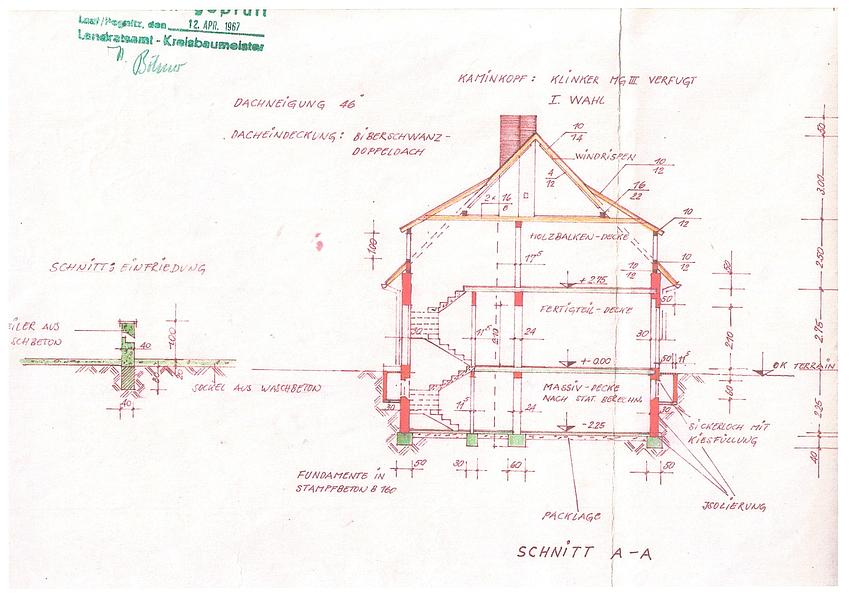 geprüft
Lauf/Pegnitz, den 12. APR. 1967
Landratsamt - Kreisbaumeister
KAMINKOPF: KLINKER MG III VERFUGT
I. WAHL
DACHNEIGUNG 46°
DACHEINDECKUNG: BIBERSCHWANZ-
DOPPELDACH
10
14
WINDRISPEN
10
12
4
12
16
22
2x 16
8
10
12
50
3.00
HOLZBALKEN-DECKE
17⁵
10
12
10
12
100
2.50
50
SCHNITT: EINFRIEDUNG
+ 2.75
50
FERTIGTEIL-DECKE
EILER AUS
SCHBETON
40
100
30
11⁵
2.10
24
30
2.10
2.75
± 0.00
50
11⁵
OK TERRAIN
SOCKEL AUS WASCHBETON
MASSIV-DECKE
NACH STAT. BERECHN.
60
40
30
11⁵
24
30
2.25
- 2.25
SICKERLOCH MIT
KIESFÜLLUNG
50
30
60
50
40
FUNDAMENTE IN
STAMPFBETON B 160
PACKLAGE
ISOLIERUNG
SCHNITT A-A